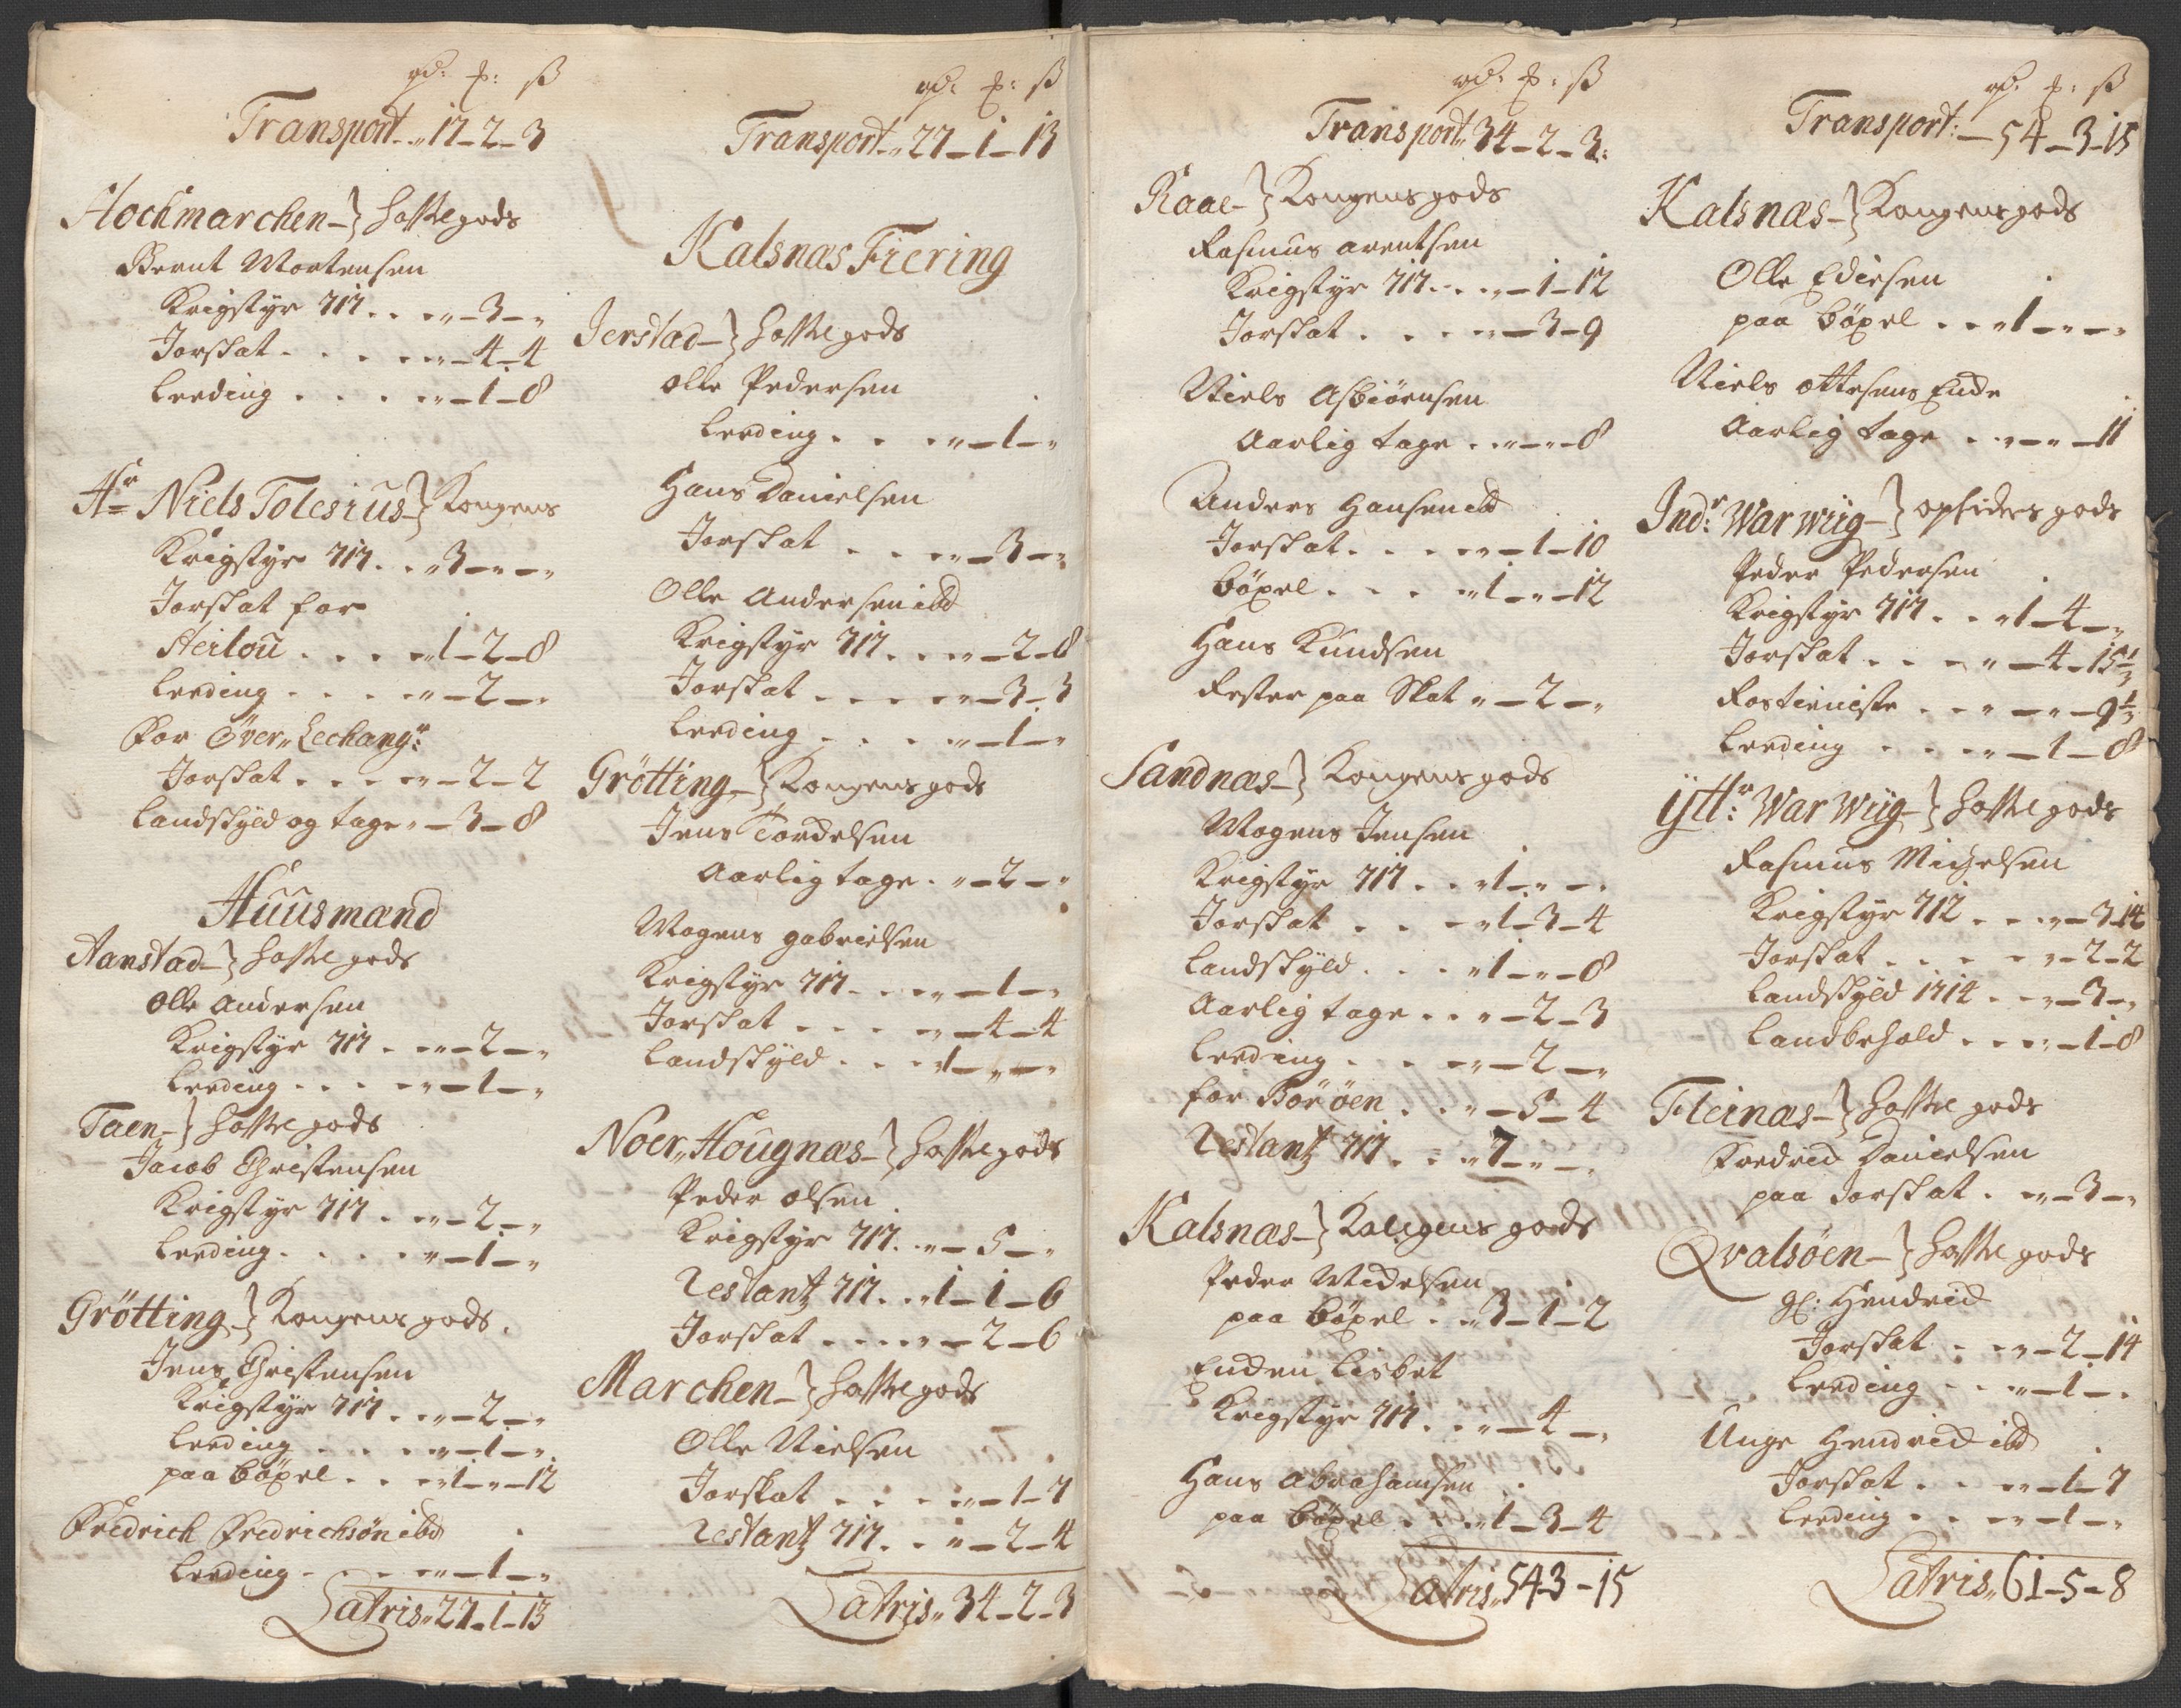 rd: : ß
Transport „ 17 – 2 – 3
Hochmarchen –} gods
Bernt Mortensen
Krigstyr 717 . . „ „ – 3 – „
Jorskat . . . . „ „ – 4 – 4
Leeding . . . . „ „ – 1 – 8
Hr Niels Tolesius –} Kongens
Krigstyr 717 . . „ 3 – „ – „
Jorskat for
Heilou . . . . „ 1 – 2 – 8
Leeding . . . . „ „ – 2 – „
For Över„ Lechangr:
Jorskat . . . . „ „ – 2 – 2
Landskyld og tage „ – 3 – 8
Huusmænd
Aanstad –} gods
Olle Andersen
Krigstyr 717 . . „ „ – 2 – „
Leeding . . . . „ „ – 1 – „
Taen –} gods
Jacob Christensen
Krigstyr 717 . . „ „ – 2 – „
Leeding . . . . . „ – 1 – „
Grötting –} Kongens gods
Jens Christensen
Krigstyr 717 . . „ „ – 2 – „
Leeding . . . . „ „ – 1 – „
paa böxel . . „ 1 – „ – 12
Fredrich Fredrichsön ibd
Leeding . . . . „ „ – 1 – „
Latris „ 27 – 1 – 13
rd: : ß
Transport „ 27 – 1 – 13
Kalsnæs Fiering
Jerstad –} gods
Olle Pedersen
Leeding . . . „ „ – 1 – „
Hans Danielsen
Jorskat . . . „ „ – 3 – „
Olle Andersen ibd
Krigstyr 717 . . . „ „ – 2 – 8
Jorskat . . . . . „ „ – 3 – 3
Leeding . . . . „ „ – 1 – „
Grötting –} Kongens gods
Jens Tordelsen
Aarlig tage . „ – 2 – „
Mogens Gabrielsen
Krigstyr 717 . . . „ „ – 1 – „
Jorskat . . . . „ „ – 4 – 4
Landskyld . . . „ 1 – „ – „
Noer„ Hougnæs –} gods
Peder Olsen
Krigstyr 717 . „ „ – 5 – „
Restantz 717 . . „ 1 – 1 – 6
Jorskat . . . . „ „ – 2 – 6
Marchen –} gods
Olle Nielsen
Jorskat . . . . „ „ – 1 – 7
Restantz 717 . . „ „ – 2 – 4
Latris „ 34 – 2 – 3
rd: : ß
Transport „ 34 – 2 – 3:
Raae –} Kongens gods
Rasmus Arentsen
Krigstyr 717 . . . „ – 1 – 12
Jorskat . . . . „ „ – 3 – 9
Niels Asbiörnsen
Aarlig tage . . „ – „ – 8
Anders Hansen ibd
Jorskat . . . . „ „ – 1 – 10
böxel . . . . „ 1 – „ – 12
Hans Knudsen
Rester paa Skat „ – 2 – „
Sandnæs –} Kongens gods
Mogens Jensen
Krigstyr 717 . . „ 1 – „ – „
Jorskat . . . „ 1 – 3 – 4
Landskyld . . . „ 1 – „ – 8
Aarlig tage . . „ – 2 – 3
Leeding . . . . „ „ – 2 – „
for Böröen . . . „ – 5 – 4
Restantz 717 . . . „ 7 – „ – „
Kalsnæs –} Kongens gods
Peder
paa böxel . . „ 3 – 1 – 2
Enden Lisbet
Krigstyr 717 . . . „ – 4 – „
Hans Abrahamsen
paa böxel . . . „ 1 – 3 – 4
Latris „ 54 – 3 – 15
rd: : ß
Transport: – 54 – 3 – 15
Kalsnæs –} Kongens gods
Olle
paa böxel . . „ 1 – „ – „
Niels Ottesens Enche
Aarlig tage . . „ – „ – 11
Indr: War wiig –} opsiders gods
Peder Pedersen
Krigstyr 717 . . „ 1 – 4 – „
Jorskat . . . „ „ – 4 – 15 ½
Rostieniste . . . „ – „ – 9 ½
Leeding . . . „ „ – 1 – 8
Ÿttr: War Wiig –} gods
Rasmus Michelsen
Krigstyr 712 . . . „ – 3 – 14
Jorskat . . . . „ „ – 2 – 2
Landskyld 1714 . . „ – 3 – „
Landbehold . . . „ „ – 1 – 8
Fleinæs –} gods
Danielsen
paa Jorskat . . „ „ – 3 – „
Qvalsöen –} gods
gl: Hendrich
Jorskat . . „ „ – 2 – 14
Leeding . . . „ „ – 1 – „
Unge Hendrich ibd
Jorskat . . . „ „ – 1 – 7
Leeding . . . „ „ – 1 – „
Latris „ 61 – 5 – 8